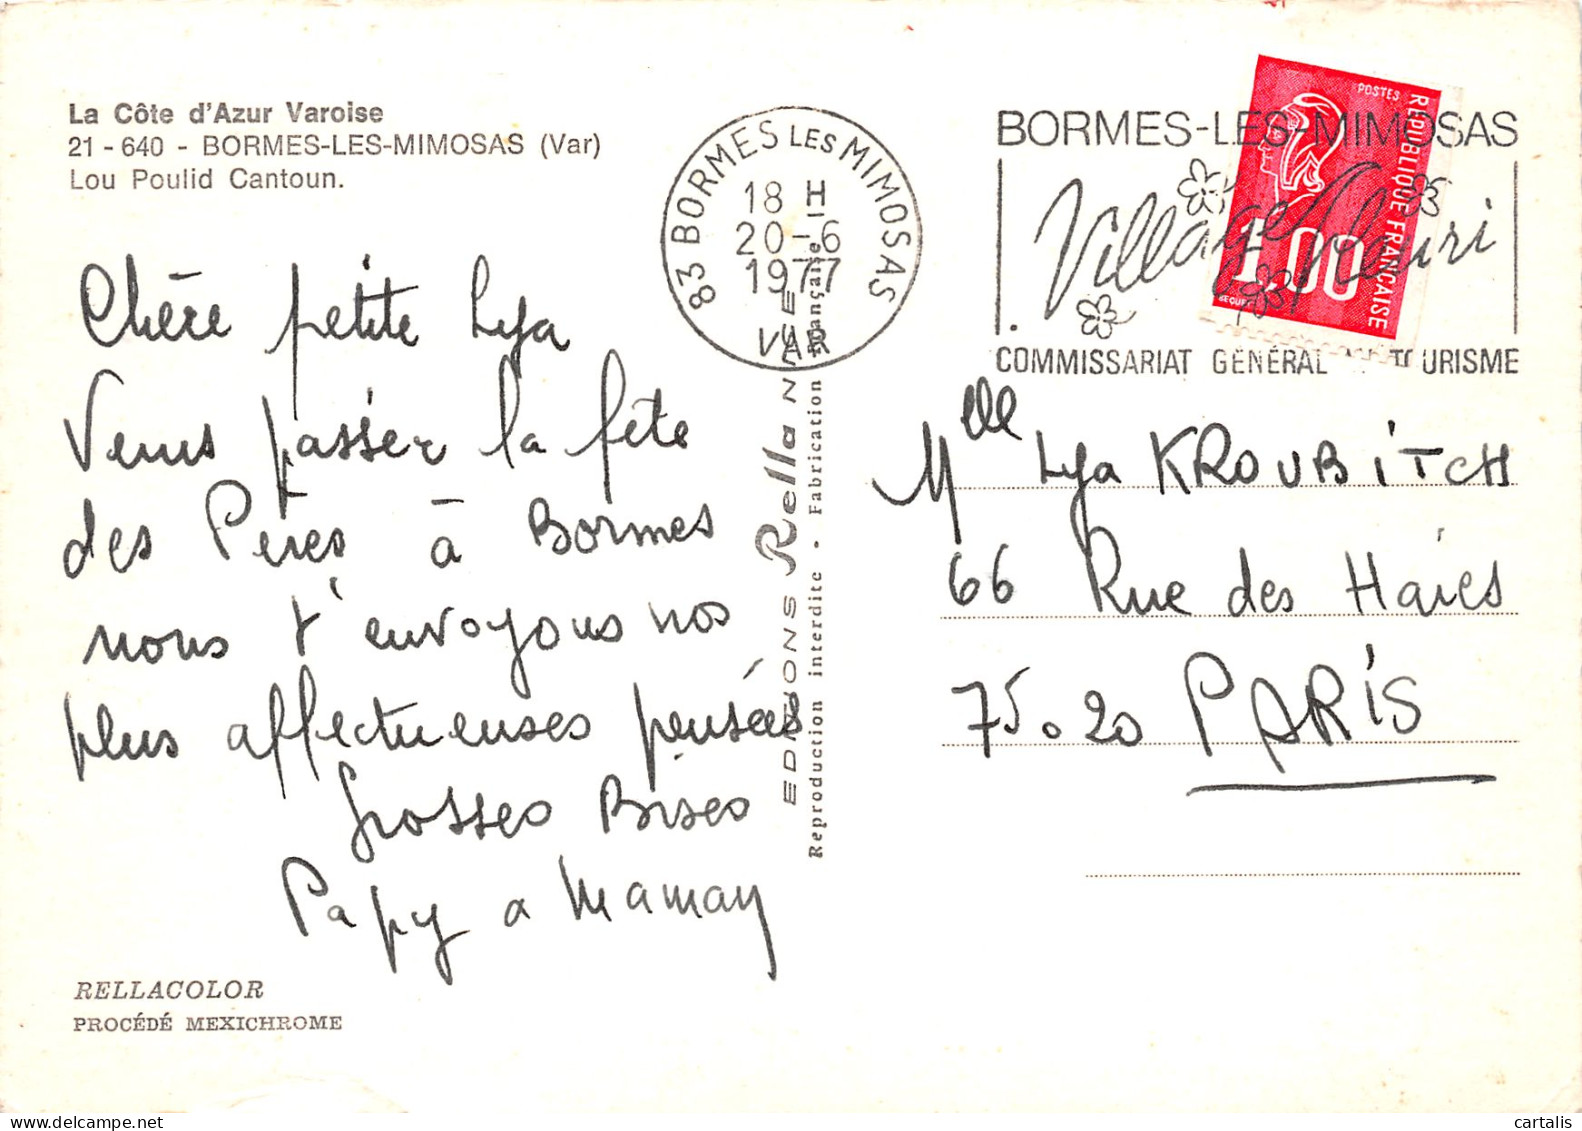 La Côte d'Azur Varoise
21 - 640 - BORMES-LES-MIMOSAS (Var)
Lou Poulid Cantoun.
Chère petite Lya
Venus passer la fête
des Pères à Bormes
nous t'envoyons nos
plus affectueuses pensées
Grosses Bises
Papy a Mamay
RELLACOLOR
PROCÉDÉ MEXICHROME
83 BORMES LES MIMOSAS
18 H
20-6
1977
VAR
EDITIONS Rella NICE
Reproduction interdite • Fabrication Française
BORMES-LES-MIMOSAS
Village Fleuri
COMMISSARIAT GÉNÉRAL AU TOURISME
POSTES
REPUBLIQUE FRANÇAISE
1.00
BEQUET
Mlle Lya KROUBITCH
66 Rue des Haies
75020 PARIS
cartalis